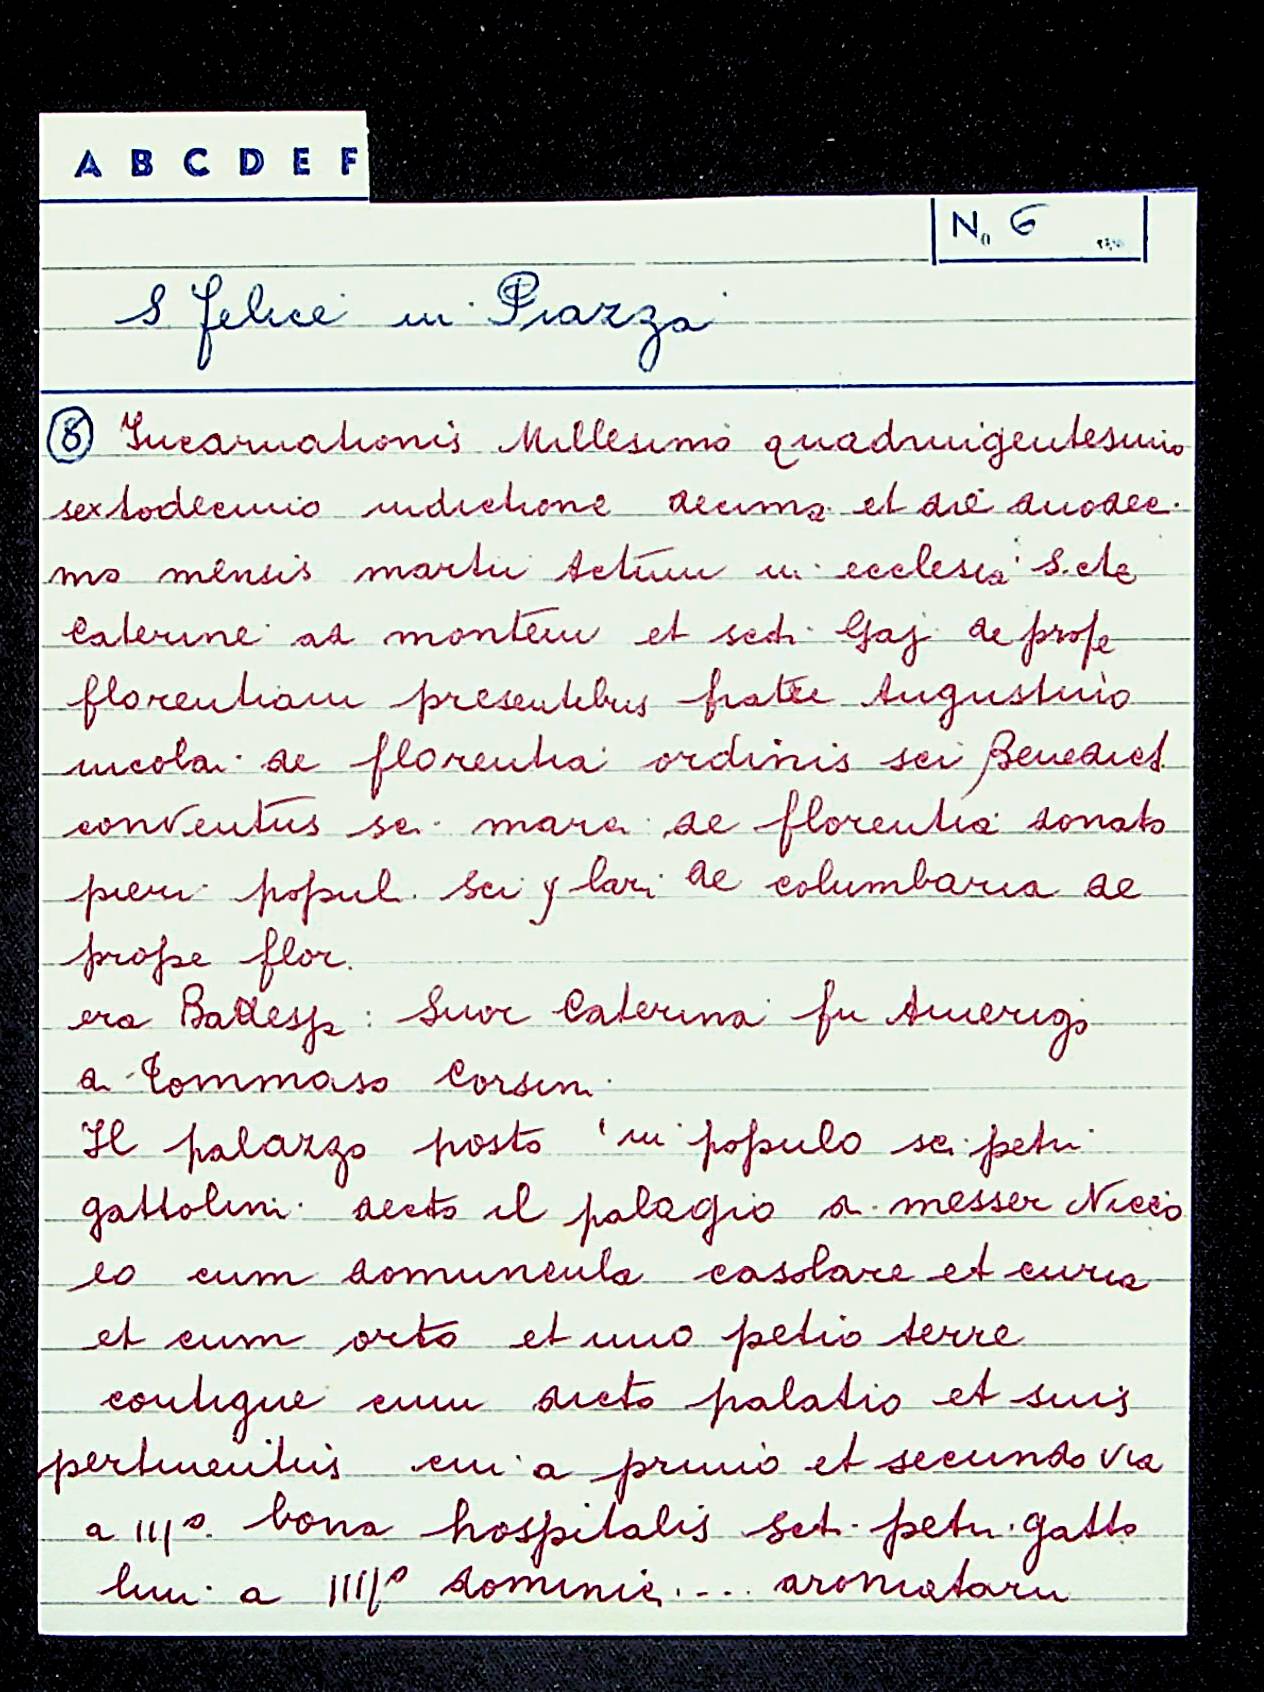 A B C D E F
No 6
S Felice in Piazza
⑧ Incarnationis Millesimo quadringentesimo
sextodecimo indictione decima et die duodec.
mo mensis martii Actum in ecclesia S.cte
Caterine ad montem et scti Gaj de prope
florentiam presentibus fratre Augustino
nicolai de florentia ordinis sci Benedict.
conventus sce marie de florentia donato
pieri popul. Sci ylari de columbaria de
prope flor.
era Badessa: Suor Caterina fu Amerigo
di Tommaso Corsini
Il palazzo posto in populo sci petri
gattolini decto il palagio di messer Niccò
lò cum domuncula casolare et curia
et cum orto et uno petio terre
contigue cum dicto palatio et suis
pertinentiis cui a primo et secundo via
a III/o bona hospitalis scti petri gatto
lini a IIII/o dominici .... aromatarii